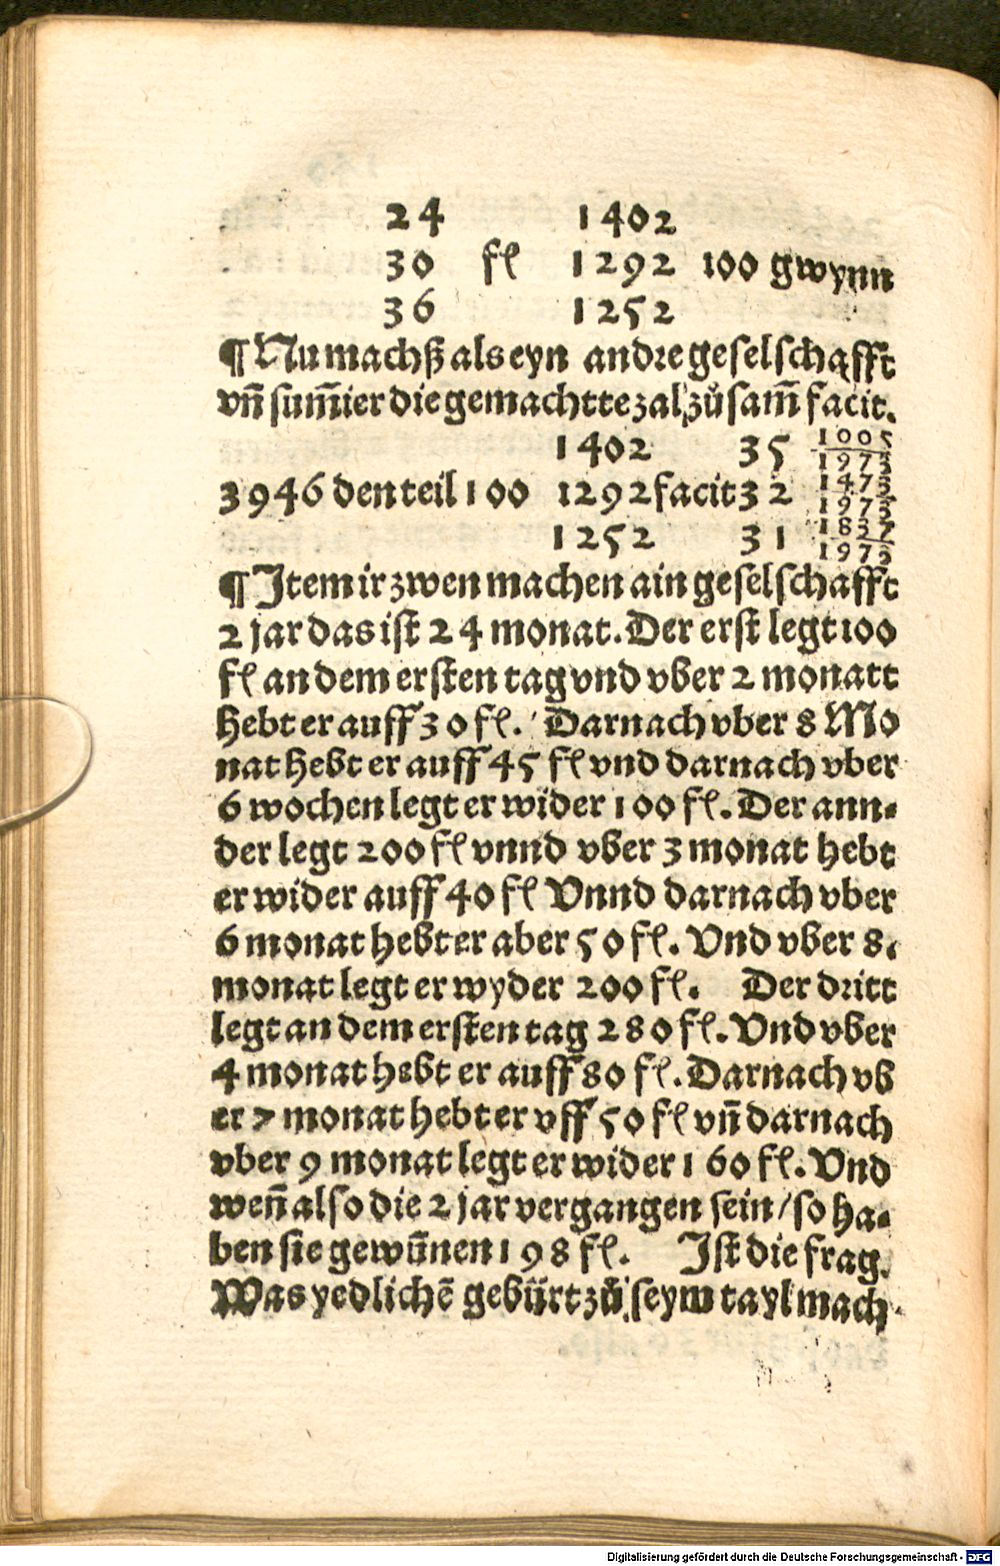 24 1402
30 fl 1292 100 gwynn
36 1252
¶ Nu machß als eyn andre geselschafft
vn̄ sum̄ier die gemachtte zal zů sam̄ facit.
1402 35 1005/1973
3946 den teil 100 1292 facit 32 1473/1973
1252 31 1837/1973
¶ Item ir zwen machen ain geselschafft
2 jar das ist 24 monat. Der erst legt 100
fl an dem ersten tag vnd vber 2 monatt
hebt er auff 30 fl. Darnach vber 8 Mo
nat hebt er auff 45 fl vnd darnach vber
6 wochen legt er wider 100 fl. Der ann⸗
der legt 200 fl vnnd vber 3 monat hebt
er wider auff 40 fl Vnnd darnach vber
6 monat hebt er aber 50 fl. Vnd vber 8.
monat legt er wyder 200 fl. Der dritt
legt an dem ersten tag 280 fl. Vnd vber
4 monat hebt er auff 80 fl. Darnach vb
er 7 monat hebt er vff 50 fl vn̄ darnach
vber 9 monat legt er wider 160 fl. Vnd
wen̄ also die 2 jar vergangen sein / so ha⸗
ben sie gewun̄nen 198 fl. Ist die frag.
Was yedlichē gebürt zů seym tayl mach
Digitalisierung gefördert durch die Deutsche Forschungsgemeinschaft - DFG